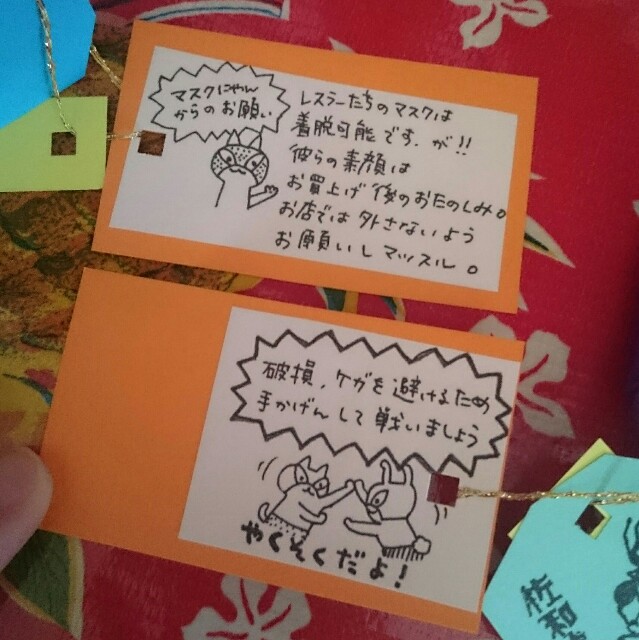 マスクにゃん
からのお願い
レスラーたちのマスクは
着脱可能です.が!!
彼らの素顔は
お買上げ後のおたのしみ。
お店では外さないよう
お願いしマッスル。
破損,ケガを避けるため
手かげんして戦いましょう
やくそくだよ!
佐和